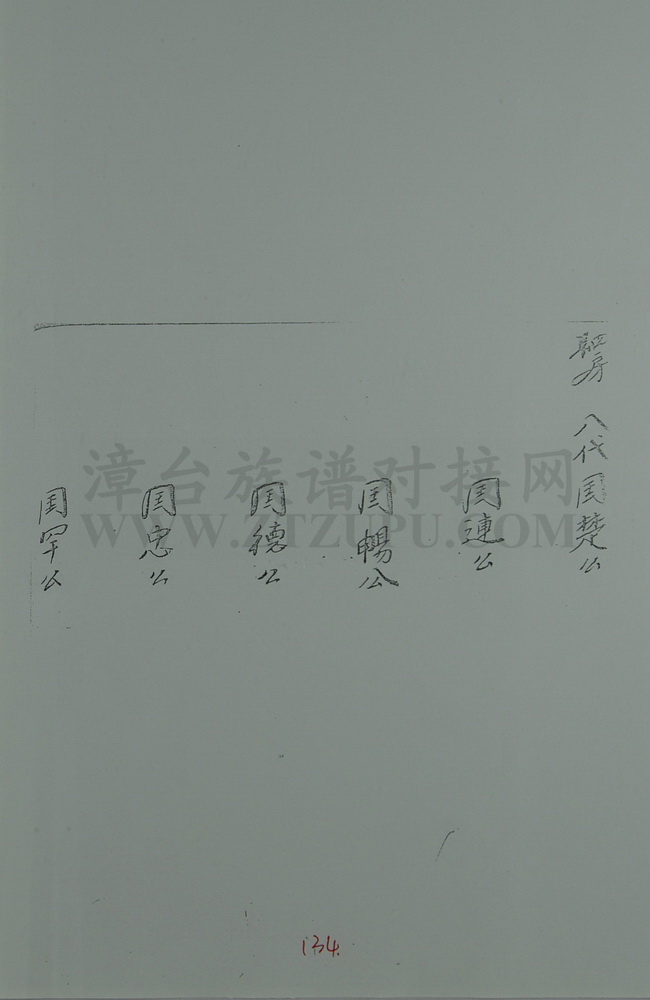 房
八代 閏楚公
閏連公
閏暢公
閏德公
閏忠公
閏罕公
漳台族谱对接网
WWW.ZTZUPU.COM
134.